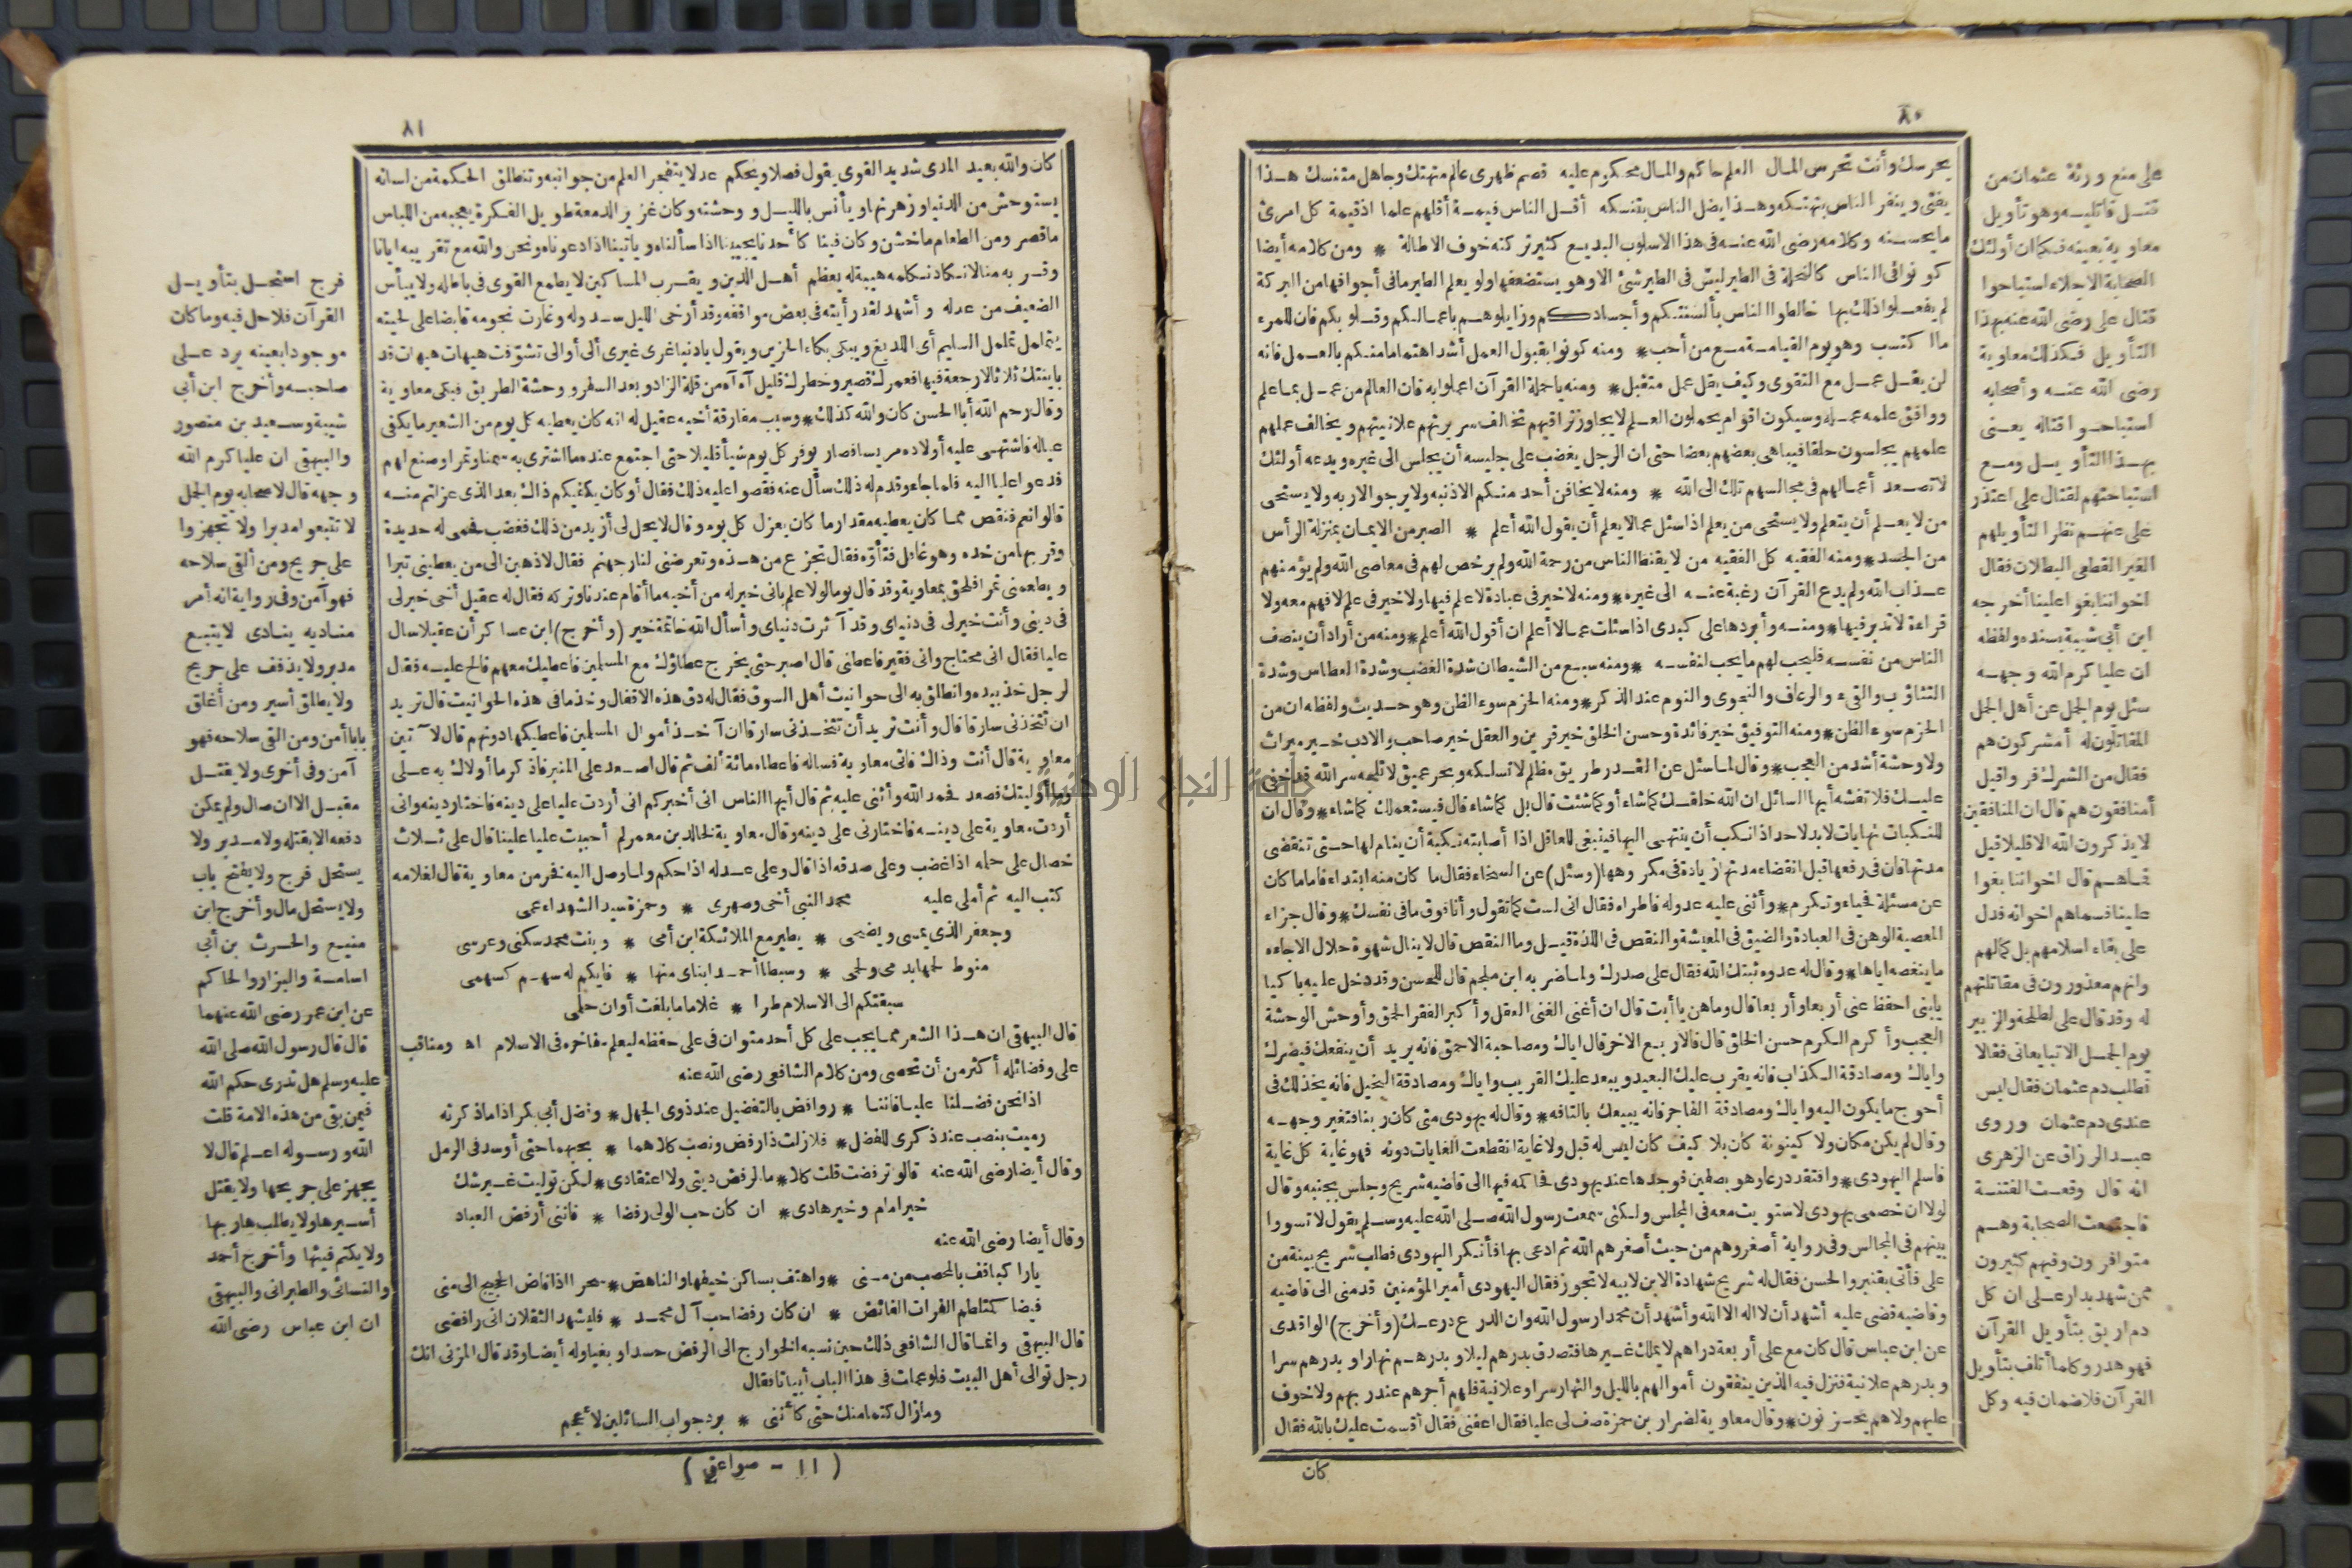 ٨٠
يحرسك وأنت تحرس المال العلم حاكم والمال محكوم عليه قصم ظهرى عالم متهتك وجاهل متنسك هذا
يفتى وينفر الناس بتهتكه وهذا يضل الناس بتنسكه أقل الناس قيمة أقلهم علما اذ قيمة كل امرئ
ما يحسنه وكلامه رضى الله عنه فى هذا الاسلوب البديع كثير تركته خوف الاطالة * ومن كلامه أيضا
كونوا فى الناس كالنحلة فى الطير ليس فى الطير شئ الا وهو يستضعفها ولو يعلم الطير ما فى أجوافها من البركة
لم يفعلوا ذلك بها خالطوا الناس بألسنتكم وأجسادكم وزايلوهم باعمالكم وقلوبكم فان للمرء
ما اكتسب وهو يوم القيامة مع من أحب * ومنه كونوا بقبول العمل أشد اهتماما منكم بالعمل فانه
لن يقل عمل مع التقوى وكيف يقل عمل متقبل * ومنه يا حملة القرآن اعملوا به فان العالم من عمل بما علم
ووافق علمه عمله وسيكون اقوام يحملون العلم لا يجاوز تراقيهم تخالف سريرتهم علانيتهم ويخالف عملهم
علمهم يجلسون حلقا فيباهى بعضهم بعضا حتى ان الرجل يغضب على جليسه أن يجلس الى غيره ويدعه أولئك
لا تصعد أعمالهم فى مجالسهم تلك الى الله * ومنه لا يخافن أحد منكم الا ذنبه ولا يرجو الا ربه ولا يستحى
من لا يعلم أن يتعلم ولا يستحى من يعلم اذا سئل عما لا يعلم أن يقول الله أعلم * الصبر من الايمان بمنزلة الرأس
من الجسد * ومنه الفقيه كل الفقيه من لا يقنط الناس من رحمة الله ولم يرخص لهم فى معاصى الله ولم يؤمنهم
عذاب الله ولم يدع القرآن رغبة عنه الى غيره * ومنه لا خير فى عبادة لا علم فيها ولا خير فى علم لا فهم معه ولا
قراءة لا تدبر فيها * ومنه وأبردها على كبدى اذا سئلت عما لا أعلم ان أقول الله أعلم * ومنه من أراد أن ينصف
الناس من نفسه فليحب لهم ما يحب لنفسه * ومنه سبع من الشيطان شدة الغضب وشدة العطاس وشدة
التثاؤب والقىء والرعاف والنجوى والنوم عند الذكر * ومنه الحزم سوء الظن وهو حديث ولفظه ان من
الحزم سوء الظن * ومنه التوفيق خير فائدة وحسن الخلق خير قرين والعقل خير صاحب والادب خير ميراث
ولا وحشة أشد من العجب * وقال لما سئل عن القدر طريق مظلم لا تسلكه وبحر عميق لا تلجه سر الله قد خفى
عليك فلا تفشه أيها السائل ان الله خلقك كما شاء أو كما شئت قال بل كما شاء قال فيستعملك كما شاء * وقال ان
للنكبات نهايات لا بد لاحد اذا نكب أن ينتهى اليها فينبغى للعاقل اذا أصابته نكبة أن ينام لها حتى تنقضى
مدتها فان فى رفعها قبل انقضاء مدتها زيادة فى مكروهها (وسئل) عن السخاء فقال ما كان منه ابتداء فاما ما كان
عن مسئلة فحياء وتكرم * وأثنى عليه عدو له فاطراه فقال انى لست كما تقول وأنا فوق ما فى نفسك * وقال جزاء
المعصية الوهن فى العبادة والضيق فى المعيشة والنقص فى اللذة قيل وما النقص قال لا ينال شهوة حلال الا جاءه
ما ينغصه اياها * وقال له عدوه ثبتك الله فقال على صدرك ولما ضربه ابن ملجم قال للحسن وقد دخل عليه باكيا
يا بنى احفظ عنى أربعا وأربعا قال وما هن يا أبت قال ان أغنى الغنى العقل وأكبر الفقر الحمق وأوحش الوحشة
العجب وأكرم الكرم حسن الخلق قال فالاربع الاخر قال اياك ومصاحبة الاحمق فانه يريد أن ينفعك فيضرك
واياك ومصادقة الكذاب فانه يقرب عليك البعيد ويبعد عليك القريب واياك ومصادقة البخيل فانه يخذلك فى
أحوج ما يكون اليه واياك ومصادقة الفاجر فانه يبيعك بالتافه * وقال له يهودى متى كان ربنا فتغير وجهه
وقال لم يكن مكان ولا كينونة كان بلا كيف كان ليس له قبل ولا غاية انقطعت الغايات دونه فهو غاية كل غاية
فاسلم اليهودى * وافتقد درعا وهو بصفين فوجدها عند يهودى فحاكمه فيها الى قاضيه شريح وجلس بجنبه وقال
لولا ان خصمى يهودى لاستويت معه فى المجلس ولكنى سمعت رسول الله صلى الله عليه وسلم يقول لا تسووا
بينهم فى المجالس وفى رواية أصغروهم من حيث أصغرهم الله ثم ادعى بها فأنكر اليهودى فطلب شريح بينة من
على فأتى بقنبر والحسن فقال له شريح شهادة الابن لابيه لا تجوز فقال اليهودى أمير المؤمنين قدمنى الى قاضيه
وقاضيه قضى عليه أشهد أن لا اله الا الله وأشهد أن محمدا رسول الله وان الدرع درعك (وأخرج) الواقدى
عن ابن عباس قال كان مع على أربعة دراهم لا يملك غيرها فتصدق بدرهم ليلا وبدرهم نهارا وبدرهم سرا
وبدرهم علانية فنزل فيه الذين ينفقون أموالهم بالليل والنهار سرا وعلانية فلهم أجرهم عند ربهم ولا خوف
عليهم ولا هم يحزنون * وقال معاوية لضرار بن حمزة صف لى عليا فقال اعفنى فقال أقسمت عليك بالله فقال
كان
على منع ورثة عثمان من
قتل قاتليه وهو تأويل
معاوية بعينه فكما ان أولئك
الصحابة الاجلاء استباحوا
قتال على رضى الله عنه بهذا
التأويل فكذلك معاوية
رضى الله عنه وأصحابه
استباحوا قتاله يعنى
بهذا التأويل ومع
استباحتهم لقتال على اعتذر
على عنهم نظرا لتأويلهم
الغير القطعى البطلان فقال
اخواننا بغوا علينا أخرجه
ابن أبى شيبة بسنده ولفظه
ان عليا كرم الله وجهه
سئل يوم الجمل عن أهل الجمل
المقاتلون له أمشركون هم
فقال من الشرك فروا قيل
أمنافقون هم قال ان المنافقين
لا يذكرون الله الا قليلا قيل
فما هم قال اخواننا بغوا
علينا فسماهم اخوانه فدل
على بقاء اسلامهم بل كمالهم
وانهم معذورون فى مقاتلتهم
له وقد قال على لطلحة والزبير
يوم الجمل الا تبايعانى فقالا
نطلب دم عثمان فقال ليس
عندى دم عثمان وروى
عبد الرزاق عن الزهرى
انه قال وقعت الفتنة
فاجتمعت الصحابة وهم
متوافرون وفيهم كثيرون
ممن شهد بدار على ان كل
دم اريق بتأويل القرآن
فهو هدر وكلما أتلف بتأويل
القرآن فلا ضمان فيه وكل
٨١
كان والله بعيد المدى شديد القوى يقول فصلا ويحكم عدلا يتفجر العلم من جوانبه وتنطلق الحكمة من لسانه
يستوحش من الدنيا وزهرتها ويأنس بالليل ووحشته وكان غزير الدمعة طويل الفكرة يعجبه من اللباس
ما قصر ومن الطعام ما خشن وكان فينا كأحدنا يجيبنا اذا سألناه ويأتينا اذا دعوناه ونحن والله مع تقريبه ايانا
وقربه منا لا نكاد نكلمه هيبة له يعظم أهل الدين ويقرب المساكين لا يطمع القوى فى باطله ولا ييأس
الضعيف من عدله وأشهد لقد رأيته فى بعض مواقفه وقد أرخى الليل سدوله وغارت نجومه قابضا على لحيته
يتململ تململ السليم أى اللديغ ويبكى بكاء الحزين ويقول يا دنيا غرى غيرى ألى أو الى تشوفت هيهات هيهات قد
باينتك ثلاثا لا رجعة فيها فعمرك قصير وخطرك قليل آه آه من قلة الزاد وبعد السفر ووحشة الطريق فبكى معاوية
وقال رحم الله أبا الحسن كان والله كذلك * وسبب مفارقة أخيه عقيل له انه كان يعطيه كل يوم من الشعير ما يكفى
عياله فاشتهى عليه أولاده مريسا فصار يوفر كل يوم شيأ قليلا حتى اجتمع عنده ما اشترى به سمنا وتمرا وصنع لهم
فدعوا عليا اليه فلما جاء وقدم له ذلك سأل عنه فقصوا عليه ذلك فقال أو كان يكفيكم ذاك بعد الذى عزلتم منه
قالوا نعم فنقص مما كان يعطيه مقدار ما كان يعزل كل يوم وقال لا يحل لى أزيد من ذلك فغضب فحمى له حديدة
وقربها من خده وهو غافل فتأوه فقال تجزع من هذه وتعرضنى لنار جهنم فقال لاذهبن الى من يعطينى تبرا
ويطعمنى تمرا فلحق بمعاوية وقد قال يوما لولا علم بانى خير له من أخيه ما أقام عندنا وتركه فقال له عقيل أخى خير لى
فى دينى وأنت خير لى فى دنياى وقد آثرت دنياى وأسأل الله خاتمة خير (وأخرج) ابن عساكر أن عقيلا سأل
عليا فقال انى محتاج وانى فقير فاعطنى قال اصبر حتى يخرج عطاؤك مع المسلمين فاعطيك معهم فالح عليه فقال
لرجل خذ بيده وانطلق به الى حوانيت أهل السوق فقال له دق هذه الاقفال وخذ ما فى هذه الحوانيت قال تريد
ان تتخذنى سارقا قال وأنت تريد أن تتخذنى سارقا ان آخذ أموال المسلمين فاعطيكها دونهم قال لآتين
معاوية قال أنت وذاك فاتى معاوية فساله فاعطاه مائة ألف ثم قال اصعد على المنبر فاذكر ما أولاك به على
وما أوليتك فصعد فحمد الله وأثنى عليه ثم قال أيها الناس انى أخبركم انى أردت عليا على دينه فاختار دينه وانى
أردت معاوية على دينه فاختارنى على دينه وقال معاوية لخالد بن معمر لم أحببت عليا علينا قال على ثلاث
خصال على حلمه اذا غضب وعلى صدقه اذا قال وعلى عدله اذا حكم ولما وصل اليه فخر من معاوية قال لغلامه
كتب اليه ثم أملى عليه محمد النبى أخى وصهرى * وحمزة سيد الشهداء عمى
وجعفر الذى يمسى ويضحى * يطير مع الملائكة ابن أمى * وبنت محمد سكنى وعرسى
منوط لحمها بدمى ولحمى * وسبطا أحمد ابناى منها * فايكم له سهم كسهمى
سبقتكم الى الاسلام طرا * غلاما ما بلغت أوان حلمى
قال البيهقى ان هذا الشعر مما يجب على كل أحد متوان فى على حفظه ليعلم مفاخره فى الاسلام اه ومناقب
على وفضائله أكثر من أن تحصى ومن كلام الشافعى رضى الله عنه
اذا نحن فضلنا عليا فاننا * روافض بالتفضيل عند ذوى الجهل * وفضل أبى بكر اذا ما ذكرته
رميت بنصب عند ذكرى للفضل * فلا زلت ذا رفض ونصب كلاهما * بحبهما حتى أوسد فى الرمل
وقال أيضا رضى الله عنه قالوا ترفضت قلت كلا * ما الرفض دينى ولا اعتقادى * لكن توليت غير شك
خير امام وخير هادى * ان كان حب الولى رفضا * فاننى أرفض العباد
وقال أيضا رضى الله عنه
يا راكبا قف بالمحصب من منى * واهتف بساكن خيفها والناهض * سحرا اذا فاض الحجيج الى منى
فيضا كملتطم الفرات الفائض * ان كان رفضا حب آل محمد * فليشهد الثقلان انى رافضى
قال البيهقى وانما قال الشافعى ذلك حين نسبه الخوارج الى الرفض حسدا وبغيا وله أيضا وقد قال المزنى انك
رجل توالى أهل البيت فلو عملت فى هذا الباب أبياتا فقال
وما زال كتما منك حتى كأننى * برد جواب السائلين لأعجم
(١١ - صواعق)
فرج استحل بتأويل
القرآن فلا حل فيه وما كان
موجودا بعينه يرد على
صاحبه وأخرج ابن أبى
شيبة وسعيد بن منصور
والبيهقى ان عليا كرم الله
وجهه قال لاصحابه يوم الجمل
لا تتبعوا مدبرا ولا تجهزوا
على جريح ومن ألقى سلاحه
فهو آمن وفى رواية انه أمر
مناديه ينادى لا يتبع
مدبر ولا يذفف على جريح
ولا يطلق أسير ومن أغلق
بابا أمن ومن القى سلاحه فهو
آمن وفى أخرى ولا يقتل
مقبل الا ان صال ولم يمكن
دفعه الا بقتله ولا مدبر ولا
يستحل فرج ولا يفتح باب
ولا يستحل مال وأخرج ابن
منيع والحرث بن أبى
اسامة والبزار والحاكم
عن ابن عمر رضى الله عنهما
قال قال رسول الله صلى الله
عليه وسلم هل تدرى حكم الله
فيمن بقى من هذه الامة قلت
الله ورسوله اعلم قال لا
يجهز على جريحها ولا يقتل
أسيرها ولا يطلب هاربها
ولا يكتم فيئها وأخرج أحمد
والنسائى والطبرانى والبيهقى
ان ابن عباس رضى الله
جامعة النجاح الوطنية